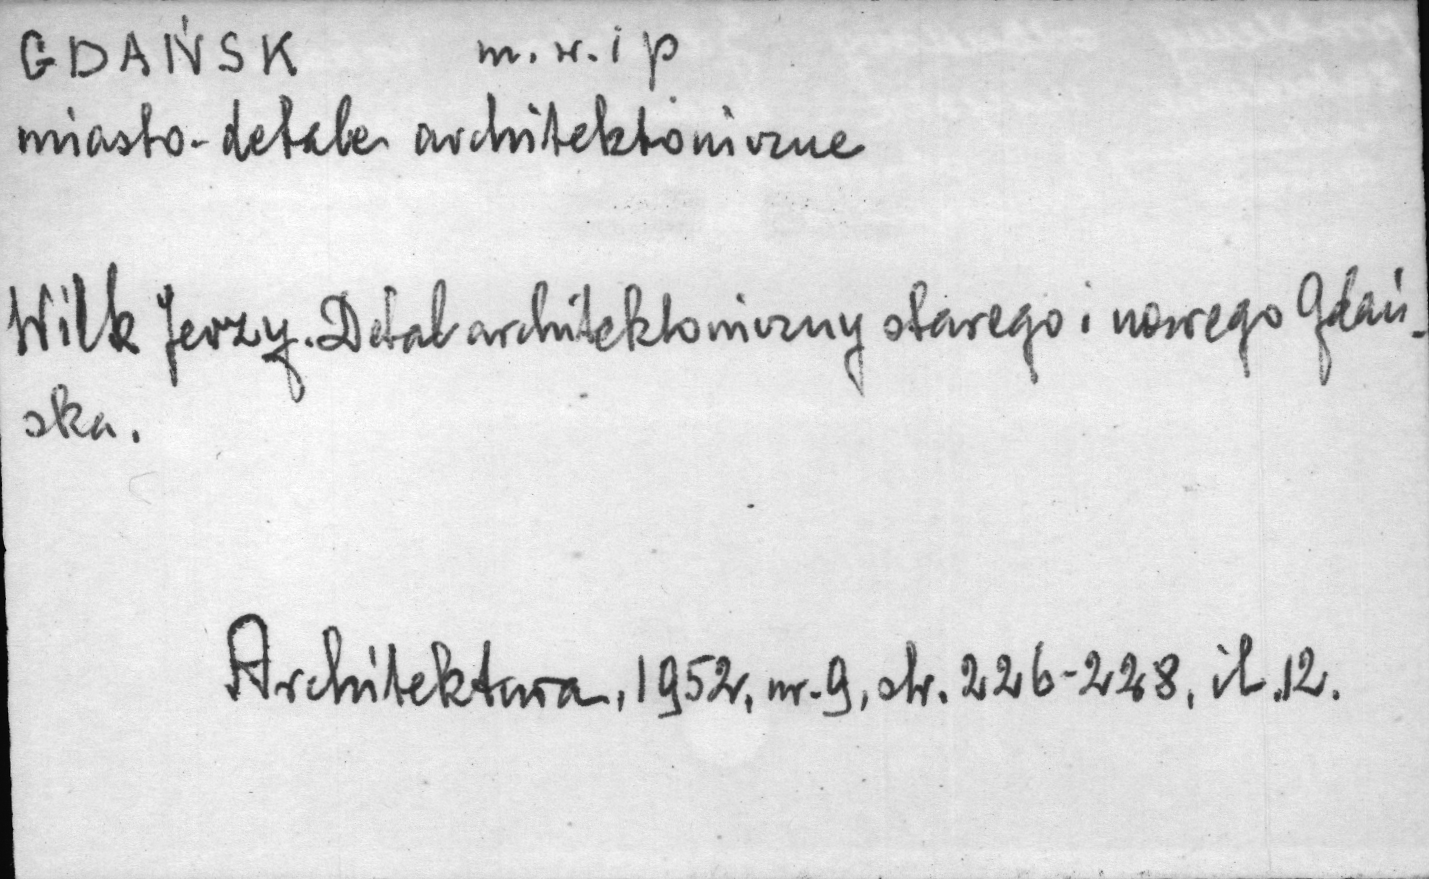 GDAŃSK m. w. i p
miasto-detale architektoniczne
Wilk Jerzy. Detal architektoniczny starego i nowego Gdań-
ska.
Architektura, 1952, nr. 9, str. 226-228, il. 12.